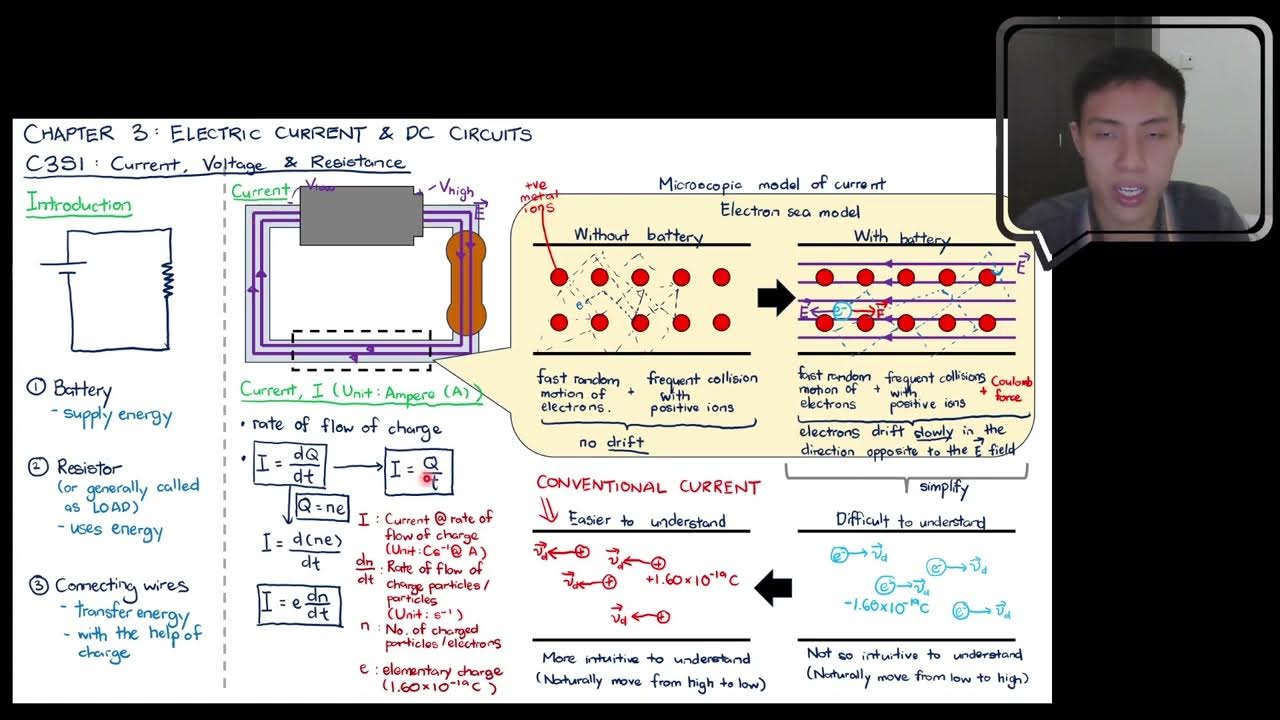 CHAPTER 3: ELECTRIC CURRENT & DC CIRCUITS
C3S1: Current, Voltage & Resistance
Introduction
① Battery
- supply energy
② Resistor
(or generally called
as LOAD)
- uses energy
③ Connecting wires
- transfer energy
- with the help of
charge
Current
Vhigh
E
Current, I (Unit: Ampere (A))
• rate of flow of charge
• I = dQ/dt
I = Q/t
Q = ne
I = d(ne)/dt
I = e dn/dt
I : Current @ rate of
flow of charge
(Unit: Cs⁻¹ @ A)
dn/dt : Rate of flow of
charge particles/
particles
(Unit: s⁻¹)
n : No. of charged
particles/electrons
e : elementary charge
(1.60×10⁻¹⁹ C)
+ve
metal
ions
Microscopic model of current
Electron sea model
Without battery
e
fast random
motion of
electrons.
+
frequent collision
with
positive ions
no drift
With battery
E
E e⁻ F
fast random
motion of
electrons
+
frequent collisions
with
positive ions
+ Coulomb
force
electrons drift slowly in the
direction opposite to the E field
simplify
CONVENTIONAL CURRENT
Easier to understand
vd +
vd +
+1.60×10⁻¹⁹ C
vd +
vd +
More intuitive to understand
(Naturally move from high to low)
Difficult to understand
e⁻ vd
e⁻ vd
e⁻ vd
-1.60×10⁻¹⁹ C
e⁻ vd
Not so intuitive to understand
(Naturally move from low to high)